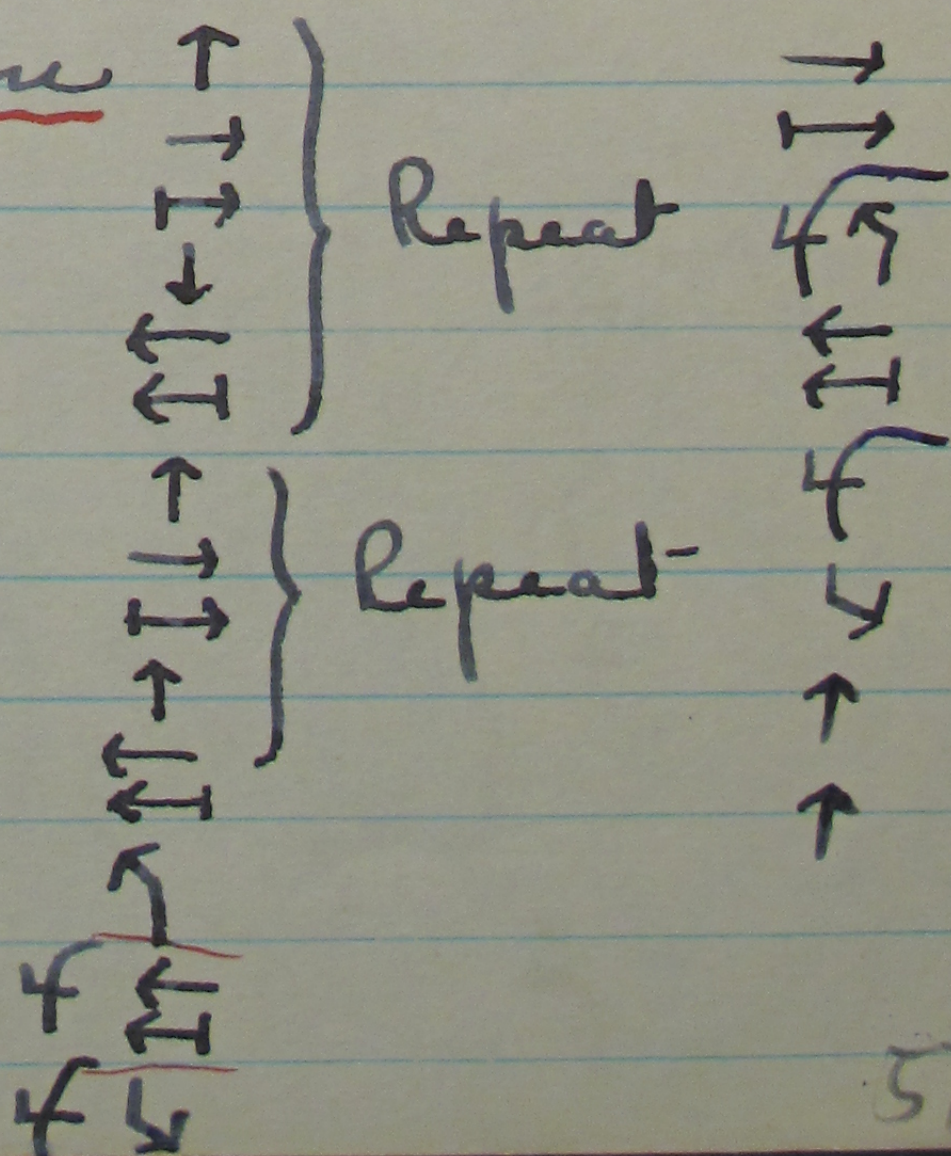 ↑
→
↦
↓
←
↤
Repeat
↑
→
↦
↑
←
↤
Repeat
↰
4
←
↤
4
↳
→
↦
4 ↰
←
↤
4
↳
↑
↑
5